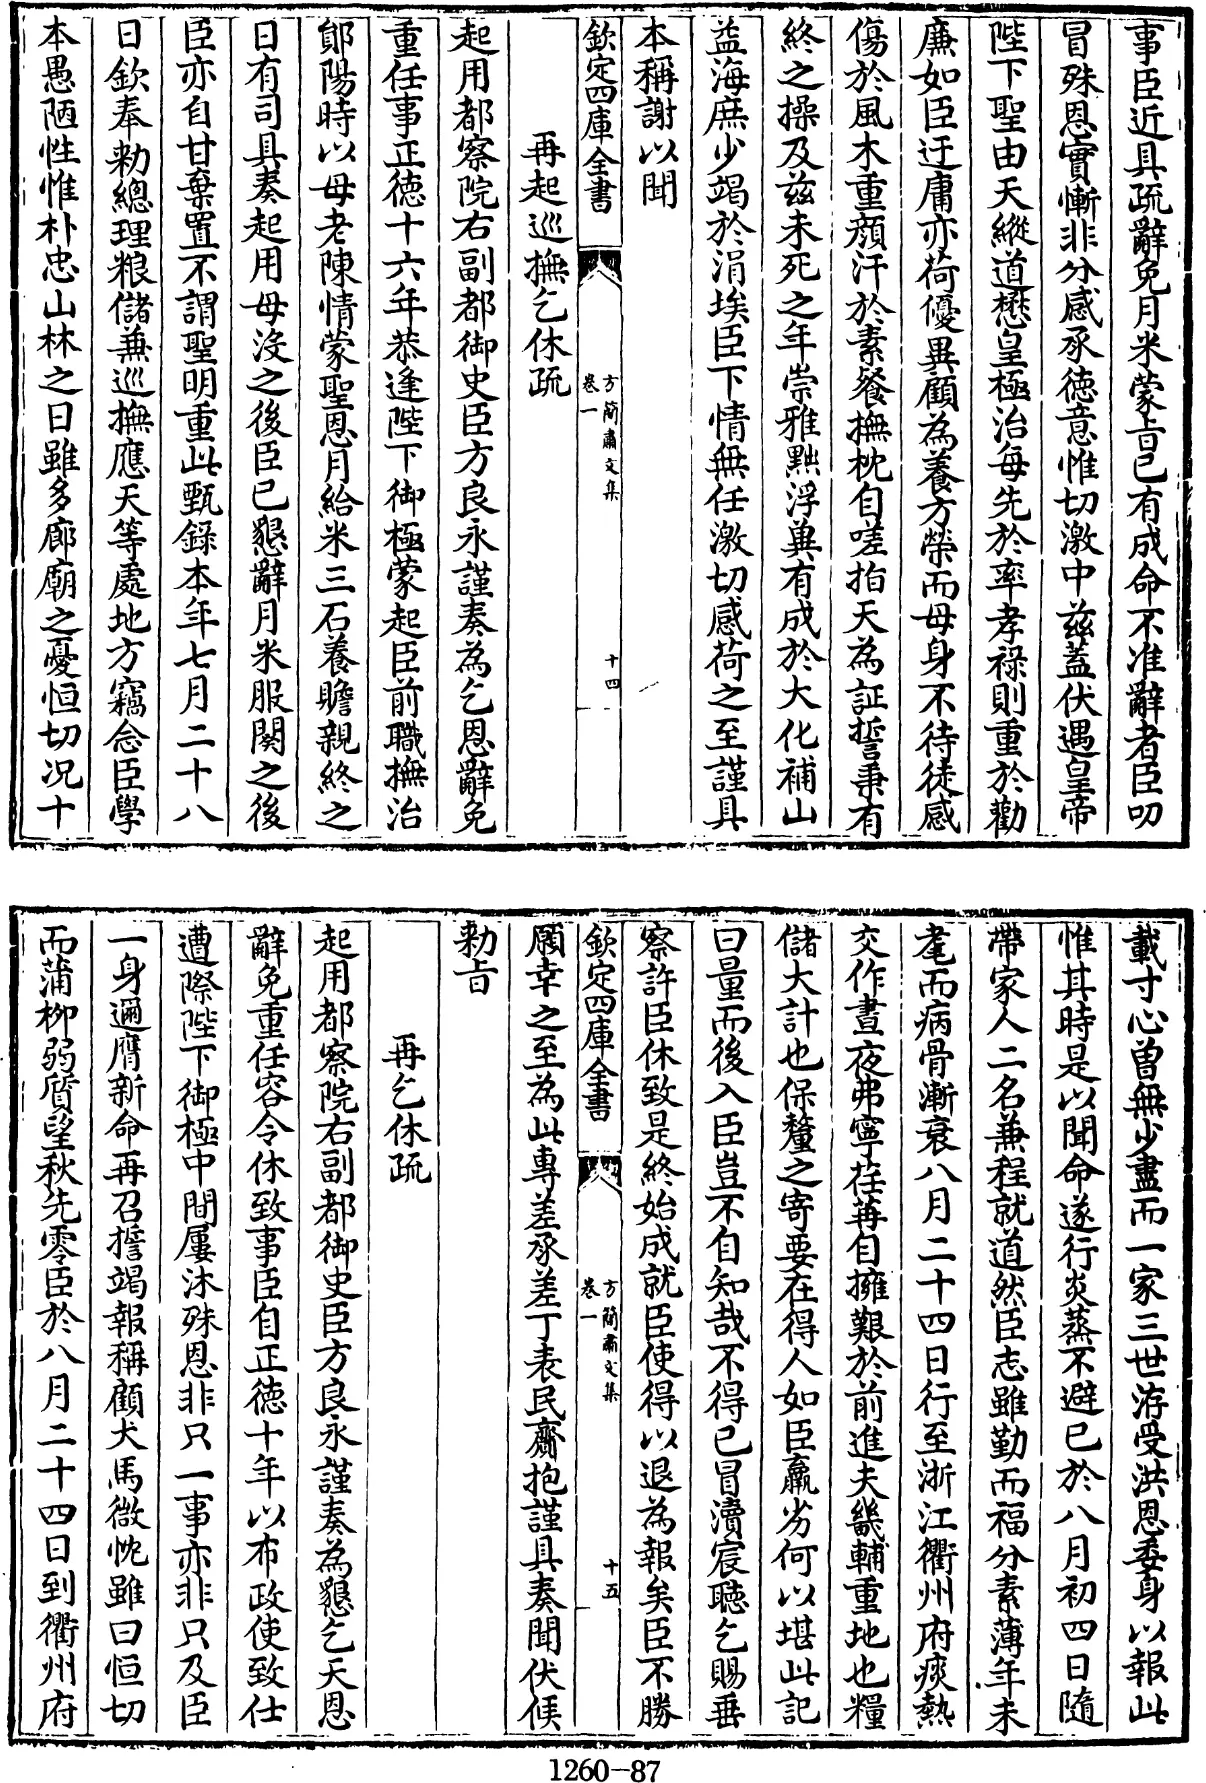 事臣近具疏辭免月米蒙旨已有成命不准辭者臣叨
冒殊恩實慚非分感承德意惟切激中茲蓋伏遇皇帝
陛下聖由天縱道懋皇極治每先於率孝祿則重於勸
廉如臣迂庸亦荷優異顧為養方榮而母身不待徒感
傷於風木重顏汗於素餐撫枕自嗟指天為証誓秉有
終之操及茲未死之年崇雅黜浮冀有成於大化補山
益海庶少竭於涓埃臣下情無任激切感荷之至謹具
本稱謝以聞
欽定四庫全書
方簡肅文集
卷一
十四
再起巡撫乞休疏
起用都察院右副都御史臣方良永謹奏為乞恩辭免
重任事正德十六年恭逢陛下御極蒙起臣前職撫治
鄖陽時以母老陳情蒙聖恩月給米三石養贍親終之
日有司具奏起用母沒之後臣已懇辭月米服闋之後
臣亦自甘棄置不謂聖明重此甄錄本年七月二十八
日欽奉勑總理粮儲兼巡撫應天等處地方竊念臣學
本愚陋性惟朴忠山林之日雖多廊廟之憂恒切况十
載寸心曽無少盡而一家三世洊受洪恩委身以報此
惟其時是以聞命遂行炎蒸不避已於八月初四日隨
帶家人二名兼程就道然臣志雖勤而福分素薄年未
耄而病骨漸衰八月二十四日行至浙江衢州府痰熱
交作晝夜弗寧荏苒自擁艱於前進夫畿輔重地也糧
儲大計也保釐之寄要在得人如臣羸劣何以堪此記
曰量而後入臣豈不自知哉不得已冒瀆宸聰乞賜垂
察許臣休致是終始成就臣使得以退為報矣臣不勝
欽定四庫全書
方簡肅文集
卷一
十五
願幸之至為此專差承差丁表民齎抱謹具奏聞伏候
勑旨
再乞休疏
起用都察院右副都御史臣方良永謹奏為懇乞天恩
辭免重任容令休致事臣自正德十年以布政使致仕
遭際陛下御極中間屢沐殊恩非只一事亦非只及臣
一身邇膺新命再召誓竭報稱顧犬馬微忱雖曰恒切
而蒲柳弱質望秋先零臣於八月二十四日到衢州府
1260—87